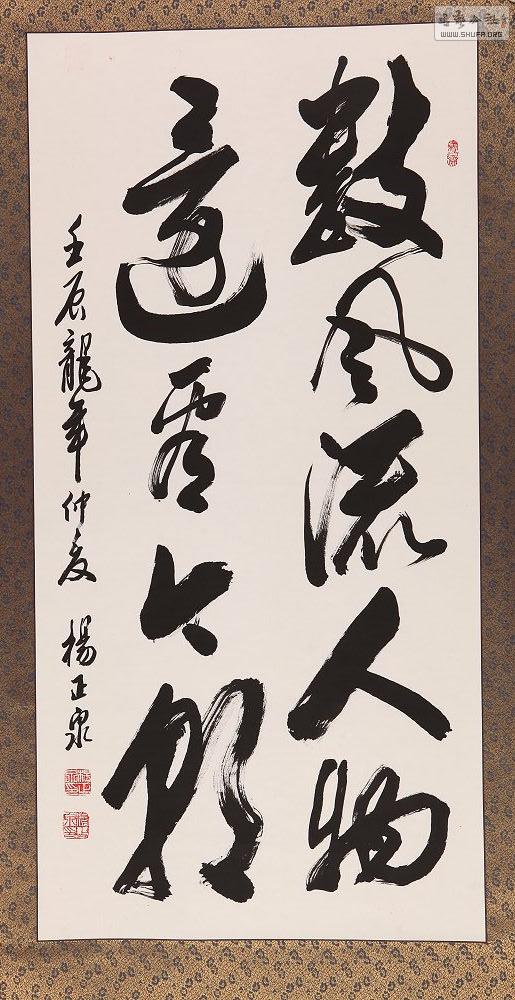 數風流人物
還看今朝
壬辰龍年仲夏 楊正泉
WWW.SHUFA.ORG